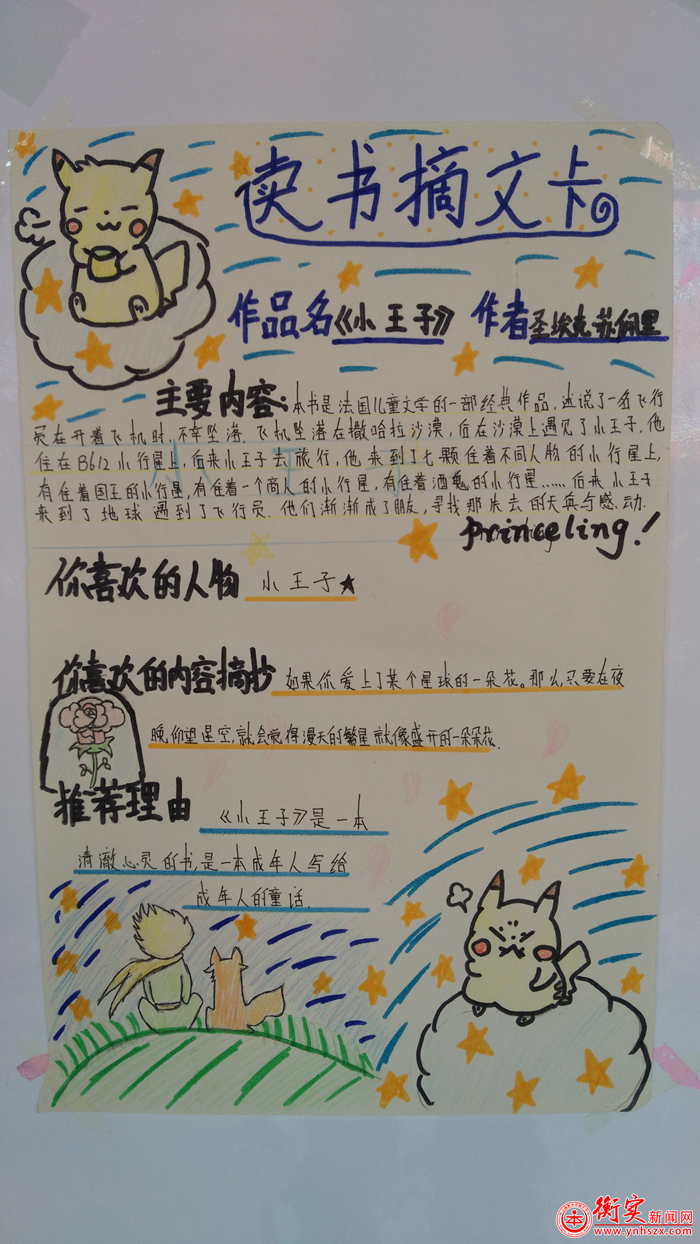 读书摘文卡
作品名《小王子》 作者圣埃克苏佩里
主要内容:本书是法国儿童文学的一部经典作品,述说了一名飞行
员在开着飞机时,不幸坠落.飞机坠落在撒哈拉沙漠,后在沙漠上遇见了小王子,他
住在B612小行星上,后来小王子去旅行,他来到了七颗住着不同人物的小行星上,
有住着国王的小行星,有住着一个商人的小行星,有住着酒鬼的小行星......后来小王子
来到了地球遇到了飞行员.他们渐渐成了朋友,寻找那失去的天真与感动.
princeling!
你喜欢的人物 小王子★
你喜欢的内容摘抄 如果你爱上了某个星球的一朵花。那么,只要在夜
晚仰望星空,就会觉得漫天的繁星就像盛开的一朵朵花.
推荐理由 《小王子》是一本
清澈心灵的书,是一本成年人写给
成年人的童话.
衡实新闻网
www.ynhszx.com